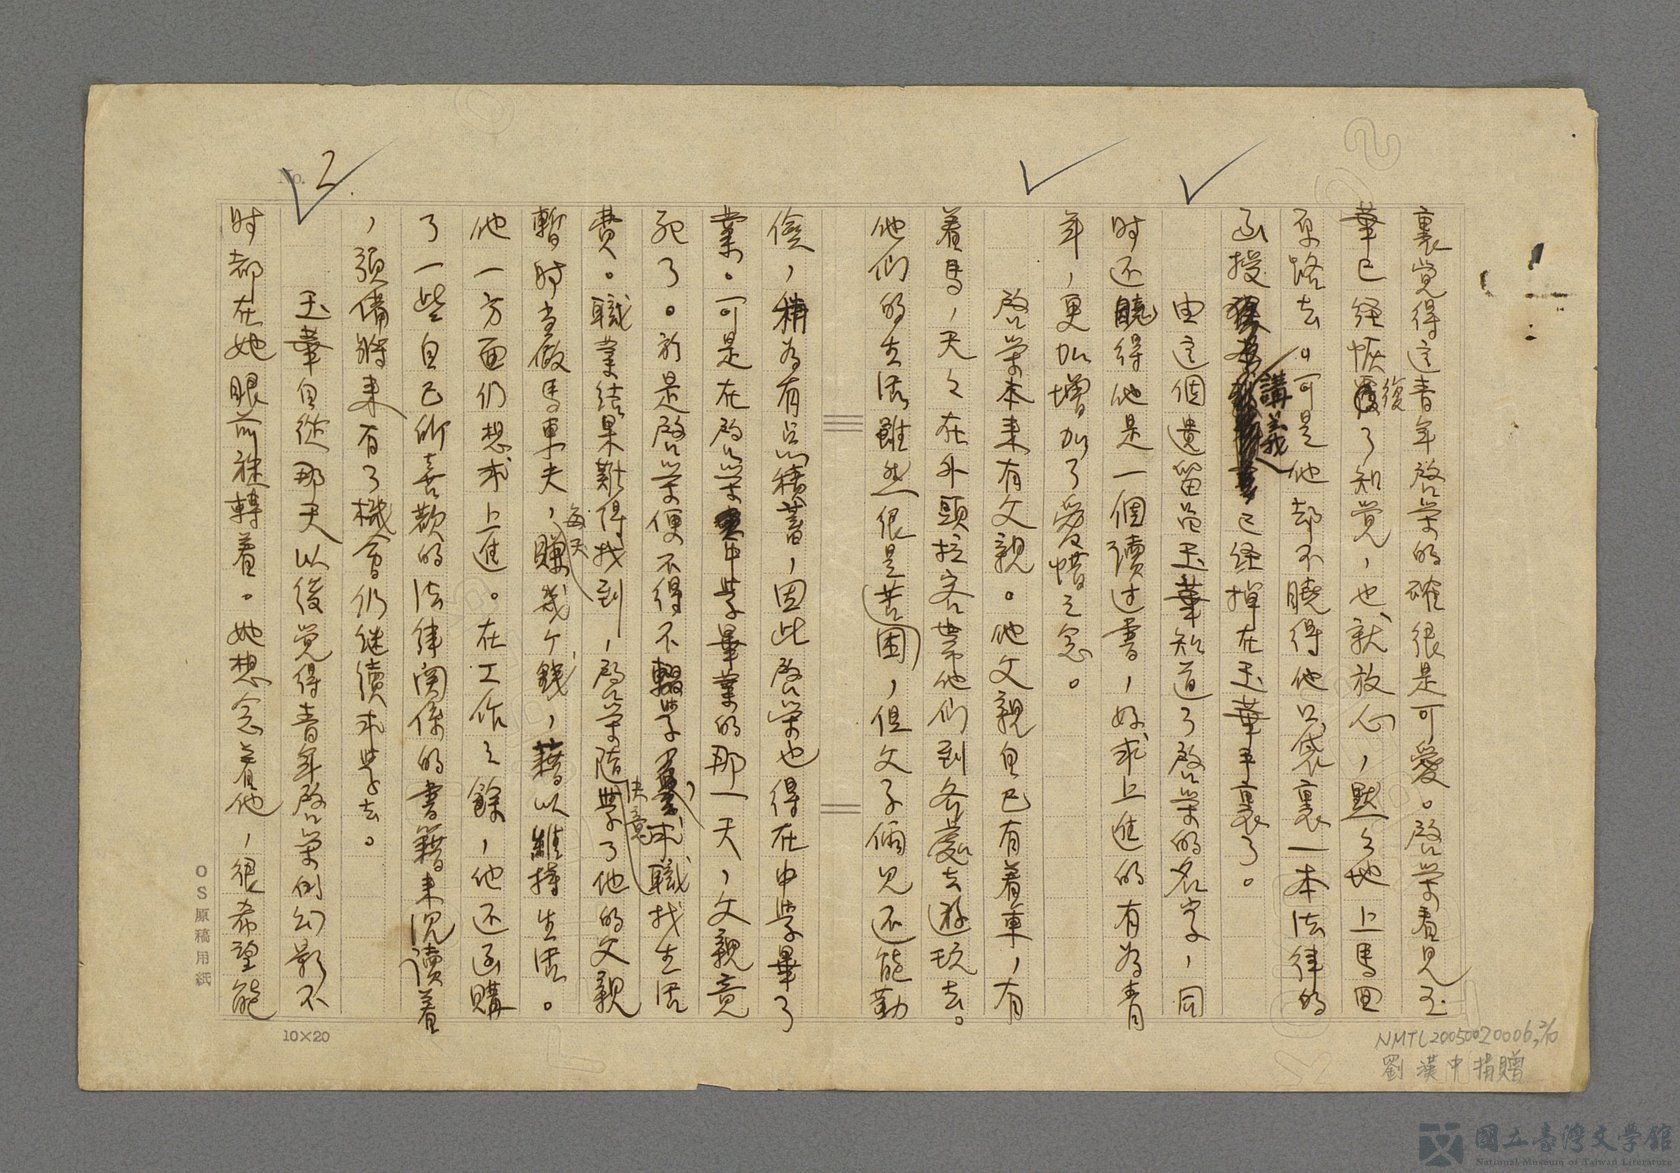 No. 2
裏覚得這青年啟荣的確很是可愛。啟荣看見玉
華已経恢復了知覚，也就放心，默々地上馬回
原路去。可是他却不曉得他口袋裏一本法律的
函授講義已経掉在玉華手裏了。
由這個遺留品玉華知道了啟荣的名字，同
时还曉得他是一個讀过書，好求上進的有為青
年，更加增加了愛惜之念。
啟荣本来有父親。他父親自己有着車，有
着馬，天々在外頭拉客帶他們到各處去遊玩去。
他们的生活雖然很是苦困，但父子倆児还能勤
儉，稍為有点積蓄，因此啟荣也得在中學畢了
業。可是在啟荣中学畢業的那一天，父親竟
死了。於是啟荣便不得不輟学，决意求職找生活
費。職業结果難得找到，啟荣隨學了他的父親
暫时当做馬車夫，每天賺幾个錢，藉以維持生活。
他一方面仍想求上進。在工作之餘，他还函購
了一些自己所喜歡的法律関係的書籍来沉讀着
，預備将来有了機會仍继續求學去。
玉華自從那天以後覚得青年啟荣的幻影不
时都在她眼前旋轉着。她想念着他，很希望能
OS原稿用紙
10×20
NMTL20050020006,2/10
劉漢中捐贈
國立臺灣文學館
National Museum of Taiwan Literature